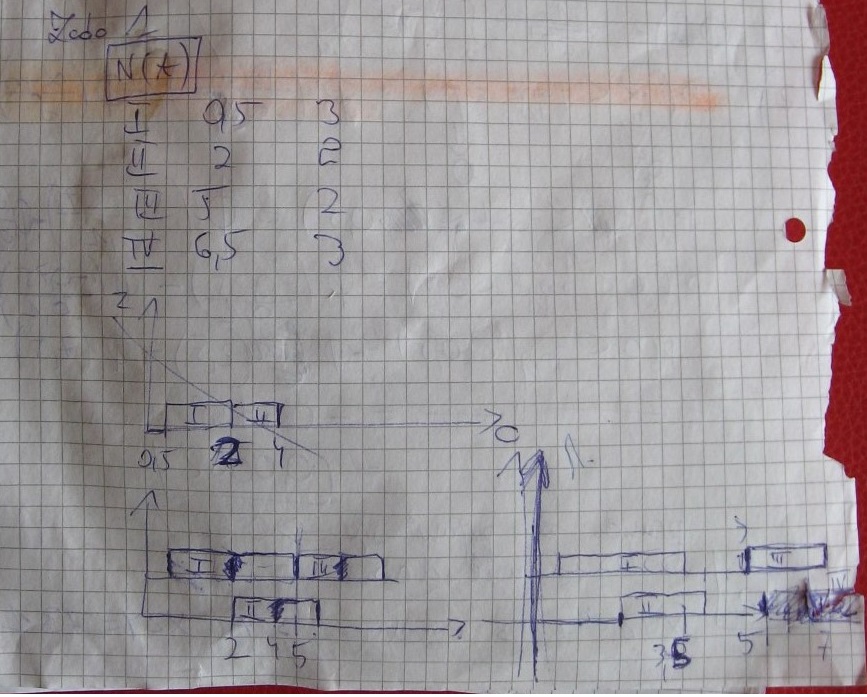 N(t)
I 0,5 3
II 2 2
III 5 2
IV 6,5 3
2
I II
0,5 2 4
0
N
I III
II
2 4 5
I III
II
3,5 5 7